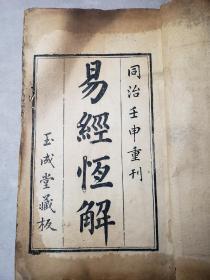 同治壬申重刊
易經恆解
玉成堂藏板